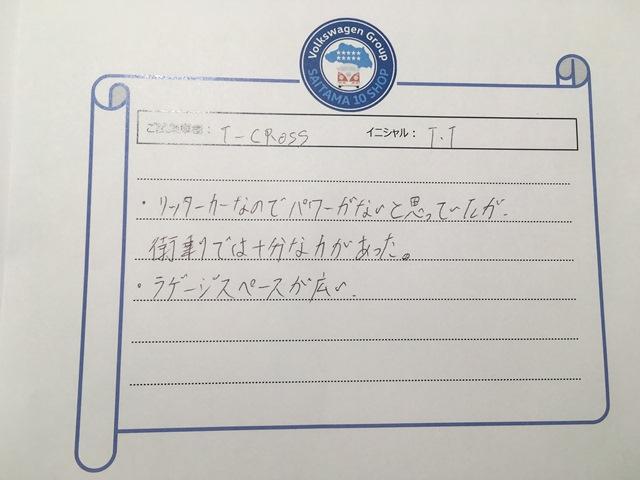 Volkswagen Group
SAITAMA 10 SHOP
ご試乗車種： T-CROSS イニシャル： T.T
・リッターカーなのでパワーがないと思っていたが、
街乗りでは十分な力があった。
・ラゲージスペースが広い。